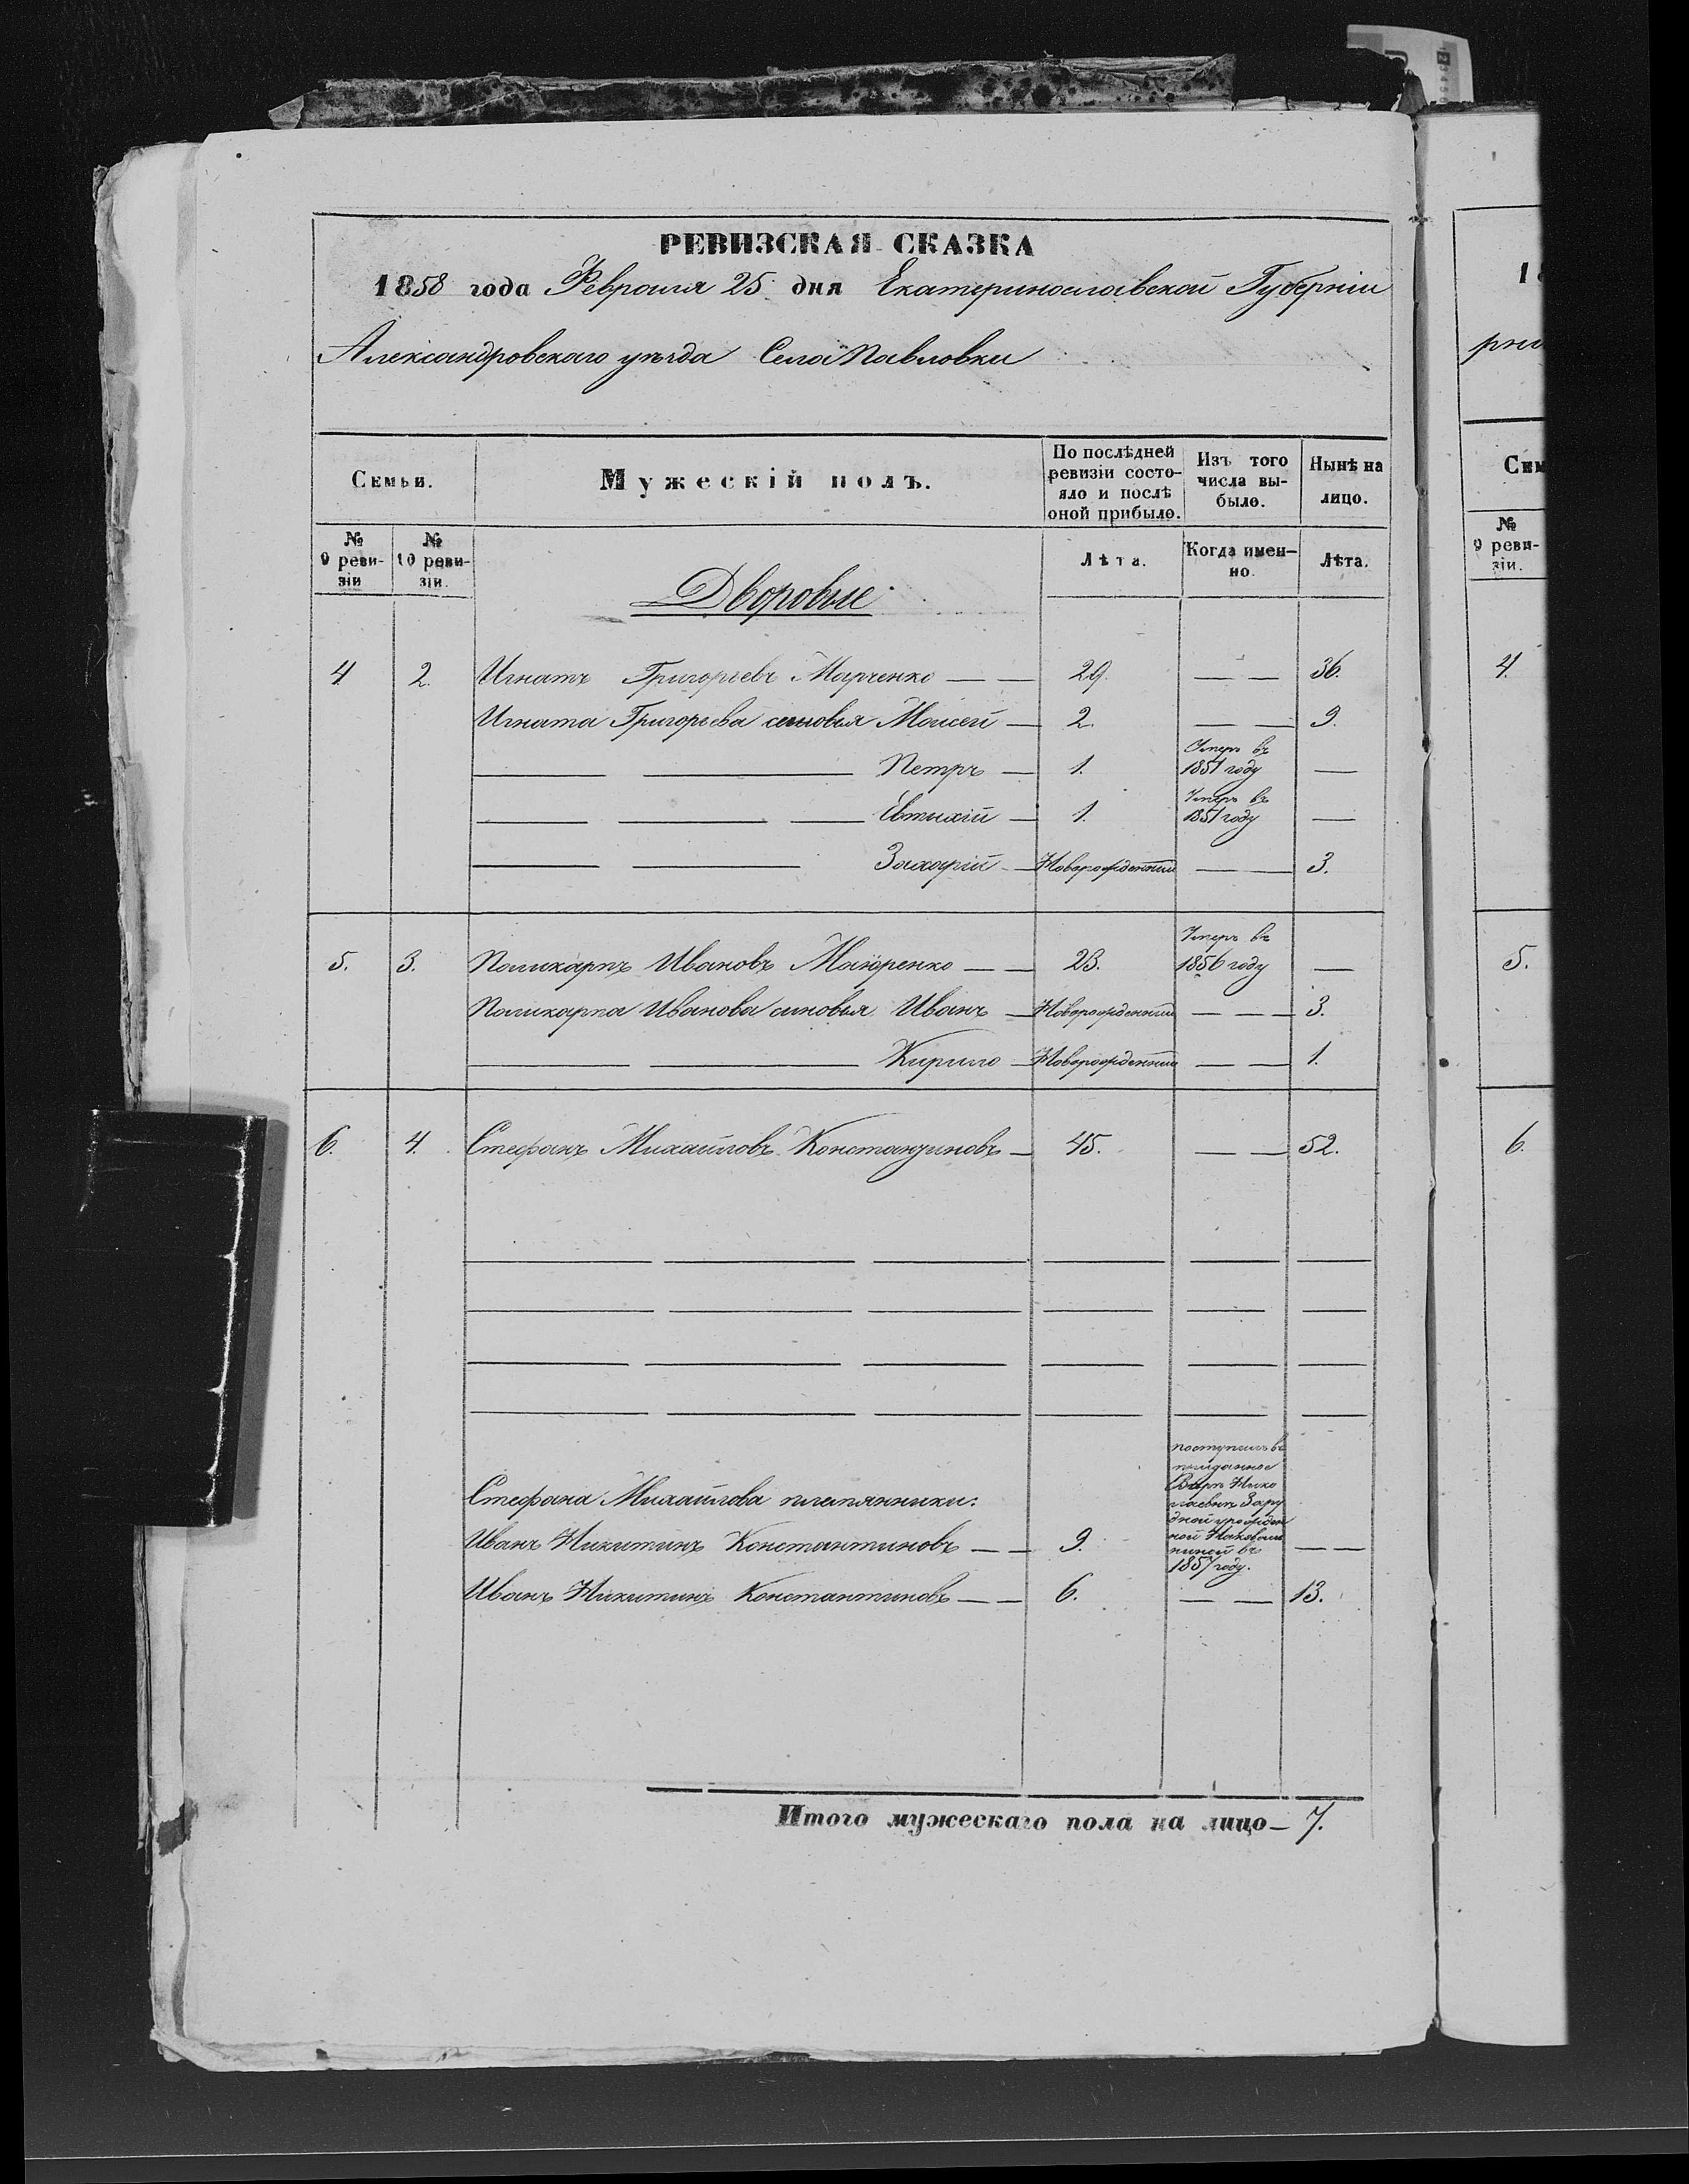 РЕВИЗСКАЯ СКАЗКА
1858 года Февраля 25 дня Екатеринославской Губерніи
Александровскаго уѣзда Села Павловки
Семьи.
Мужескій полъ.
По послѣдней ревизіи состо-
яло и послѣ оной прибыло.
Изъ того числа вы-
было.
Нынѣ на лицо.
№ 9 реви-
зіи
№ 10 реви-
зіи.
Лѣта.
Когда имен-
но.
Лѣта.
Дворовые
4 2. Игнатъ Григорьевъ Марченко — — 29. — — 36.
Игната Григорьева сыновья Моисей — 2. — — 9.
— — Петръ — 1. Умеръ въ 1851 году —
— — — Евтихій — 1. Умеръ въ 1851 году —
— — Захарій — Новорожденный — — 3.
5. 3. Поликарпъ Ивановъ Мазуренко — — 23. Умеръ въ 1856 году —
Поликарпа Иванова сыновья Иванъ — Новорожденный — — — 3.
— — Кирило — Новорожденный — — 1.
6. 4. Стефанъ Михайловъ Константиновъ — 45. — — 52.
Стефана Михайлова племянники:
Иванъ Никитинъ Константиновъ — — 9.
поступилъ въ
приданное
Вѣрѣ Нико
лаевнѣ Зару
дной урожден
ной
въ
1857 году.
— —
Иванъ Никитинъ Константиновъ — — 6. — — 13.
Итого мужескаго пола на лицо — 7.
18
рні
Сем
№
9 реви-
зіи.
4.
5.
6.